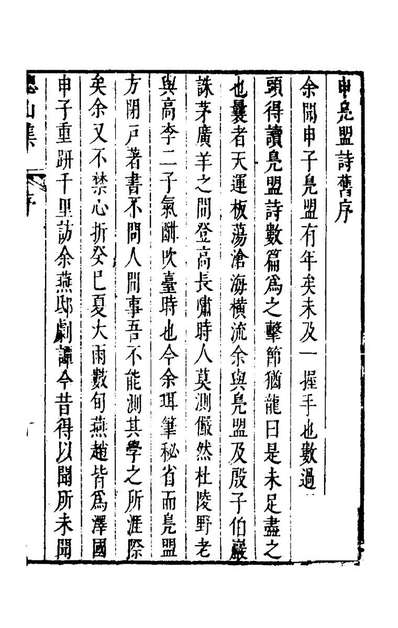 申鳧盟詩舊序
余聞申子鳧盟有年矣未及一握手也數過
頭得讀鳧盟詩數篇爲之擊節猶龍曰是未足盡之
也曩者天運板蕩滄海橫流余與鳧盟及殷子伯巖
誅茅廣羊之間登高長嘯時人莫測儼然杜陵野老
與高李二子氣酣吹臺時也今余珥筆秘省而鳧盟
方閉戶著書不問人間事吾不能測其學之所涯際
矣余又不禁心折癸巳夏大雨數旬燕趙皆爲澤國
申子重趼千里訪余燕邸劇譚今昔得以聞所未聞
聰山集
序